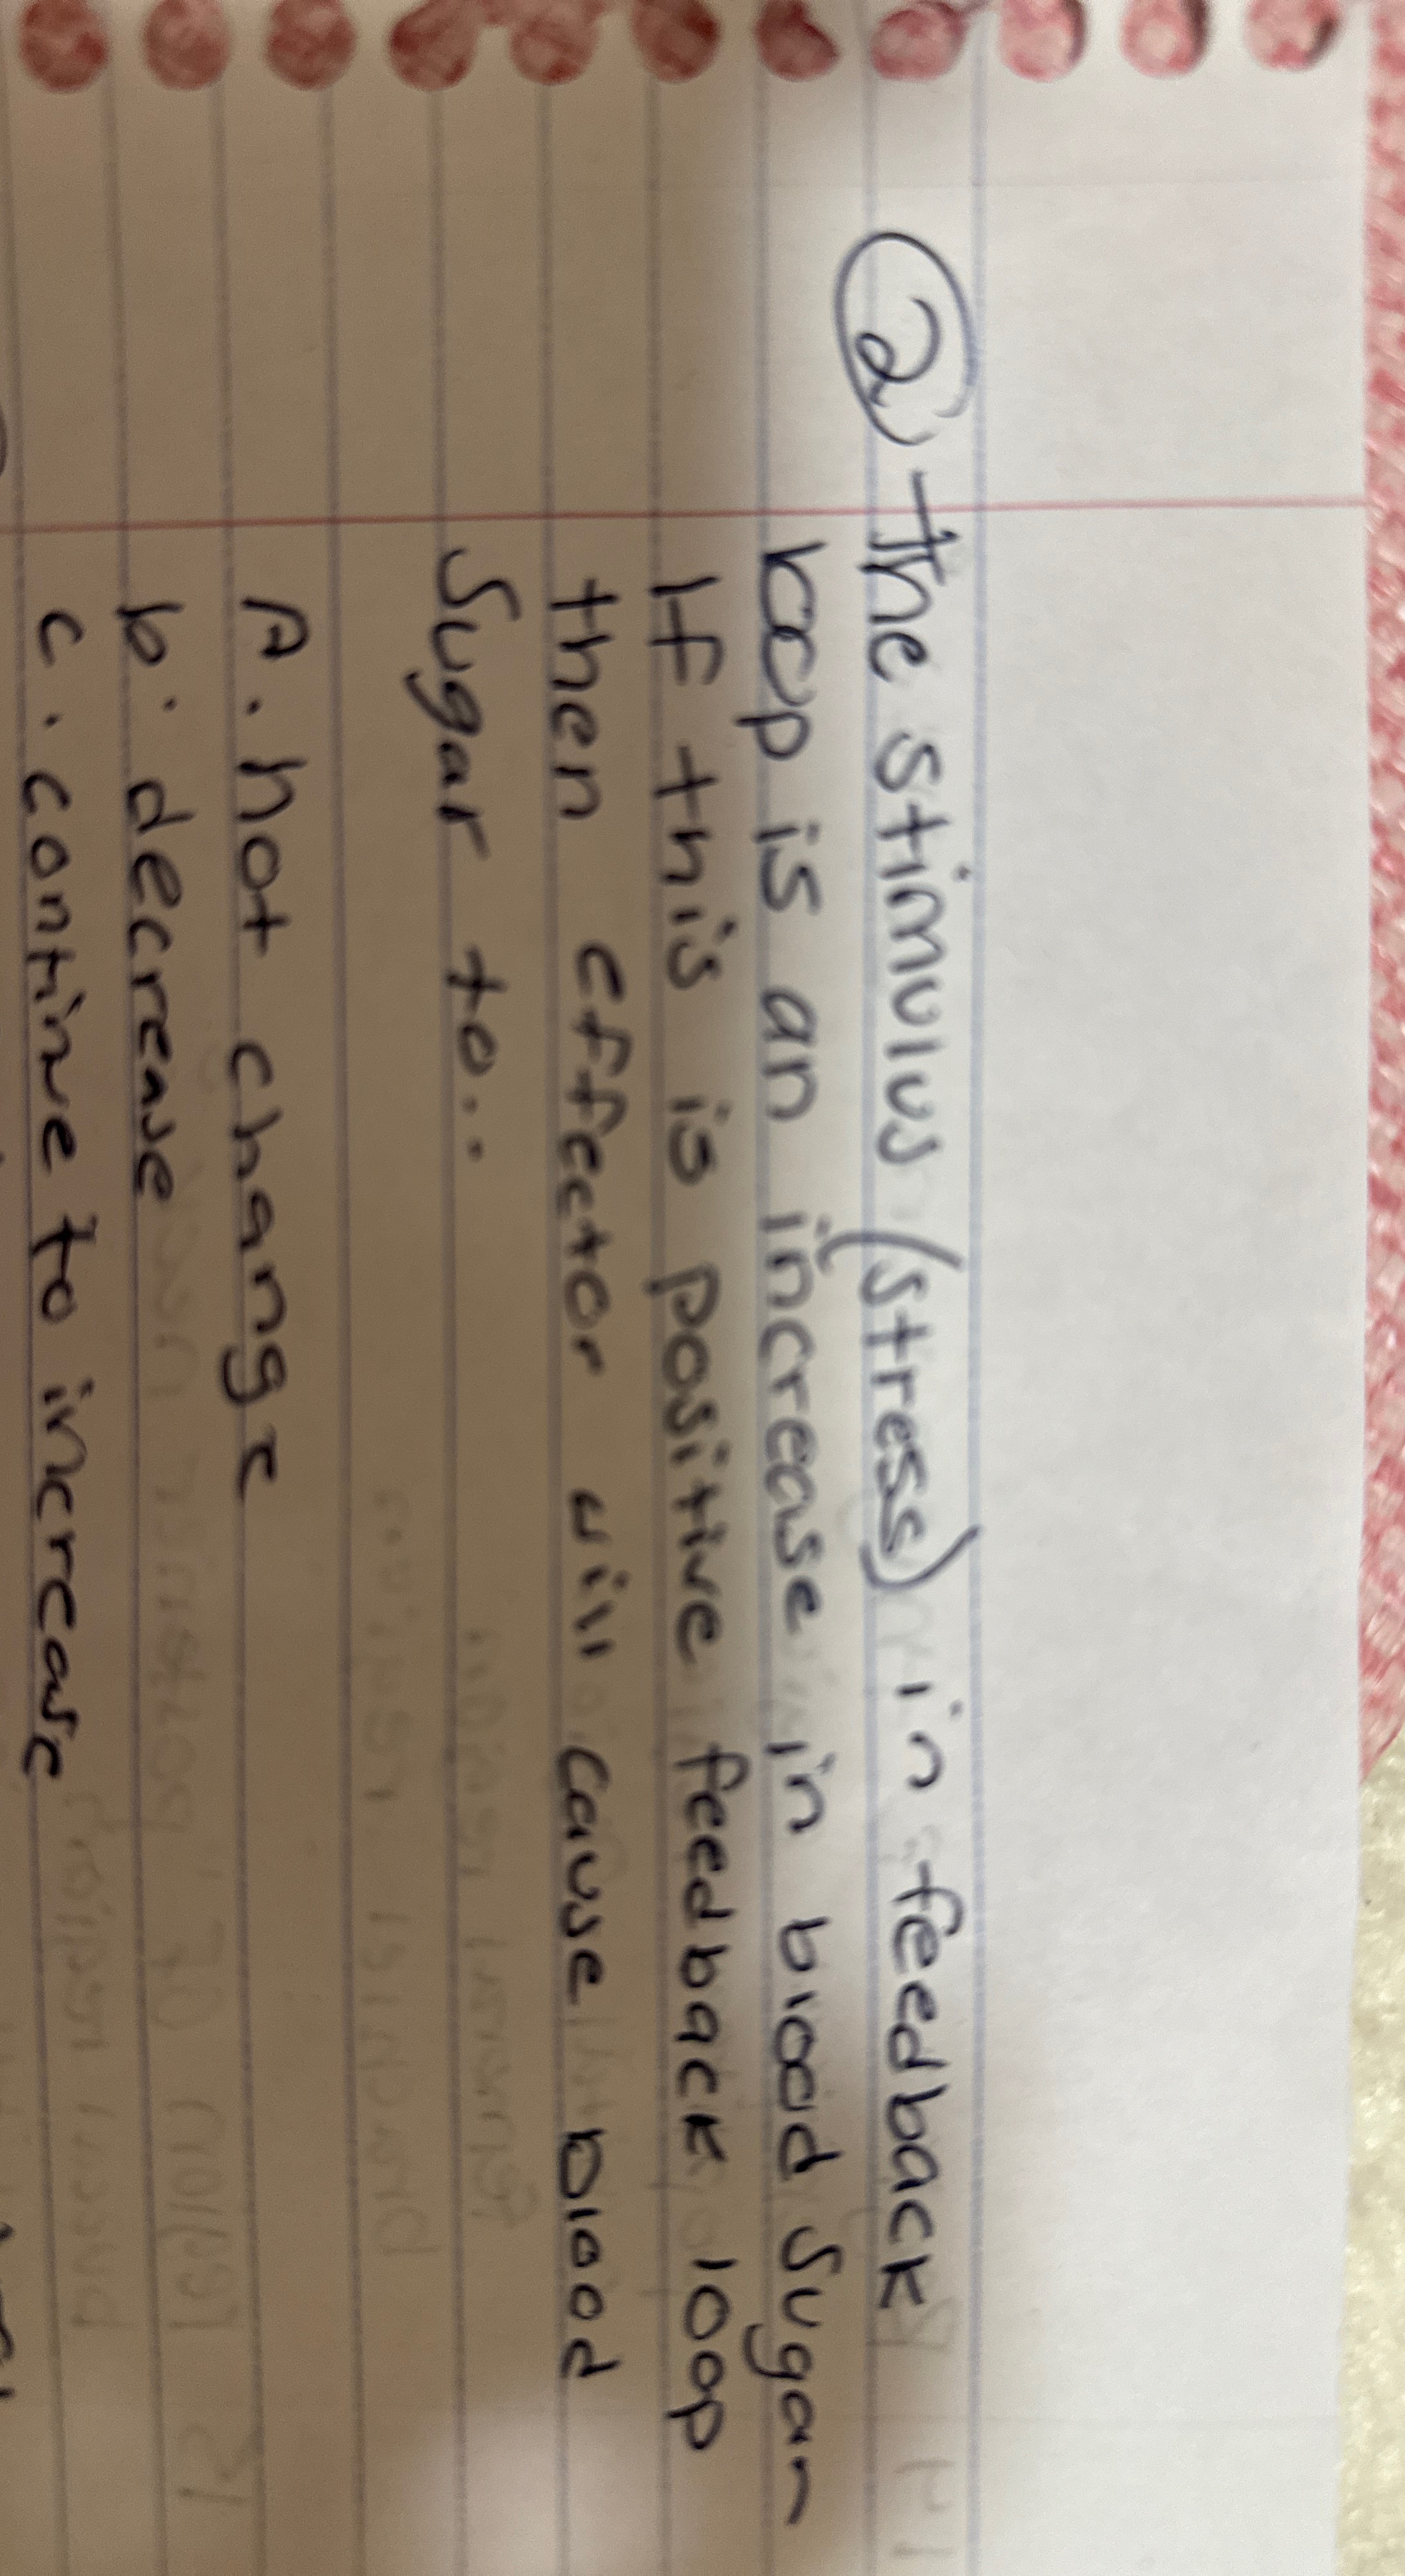 2) The stimulus (stress) in feedback
loop is an increase in blood sugar
If this is positive feedback loop
then effector will cause blood
sugar to..
A. not change
b. decrease
c. continue to increase